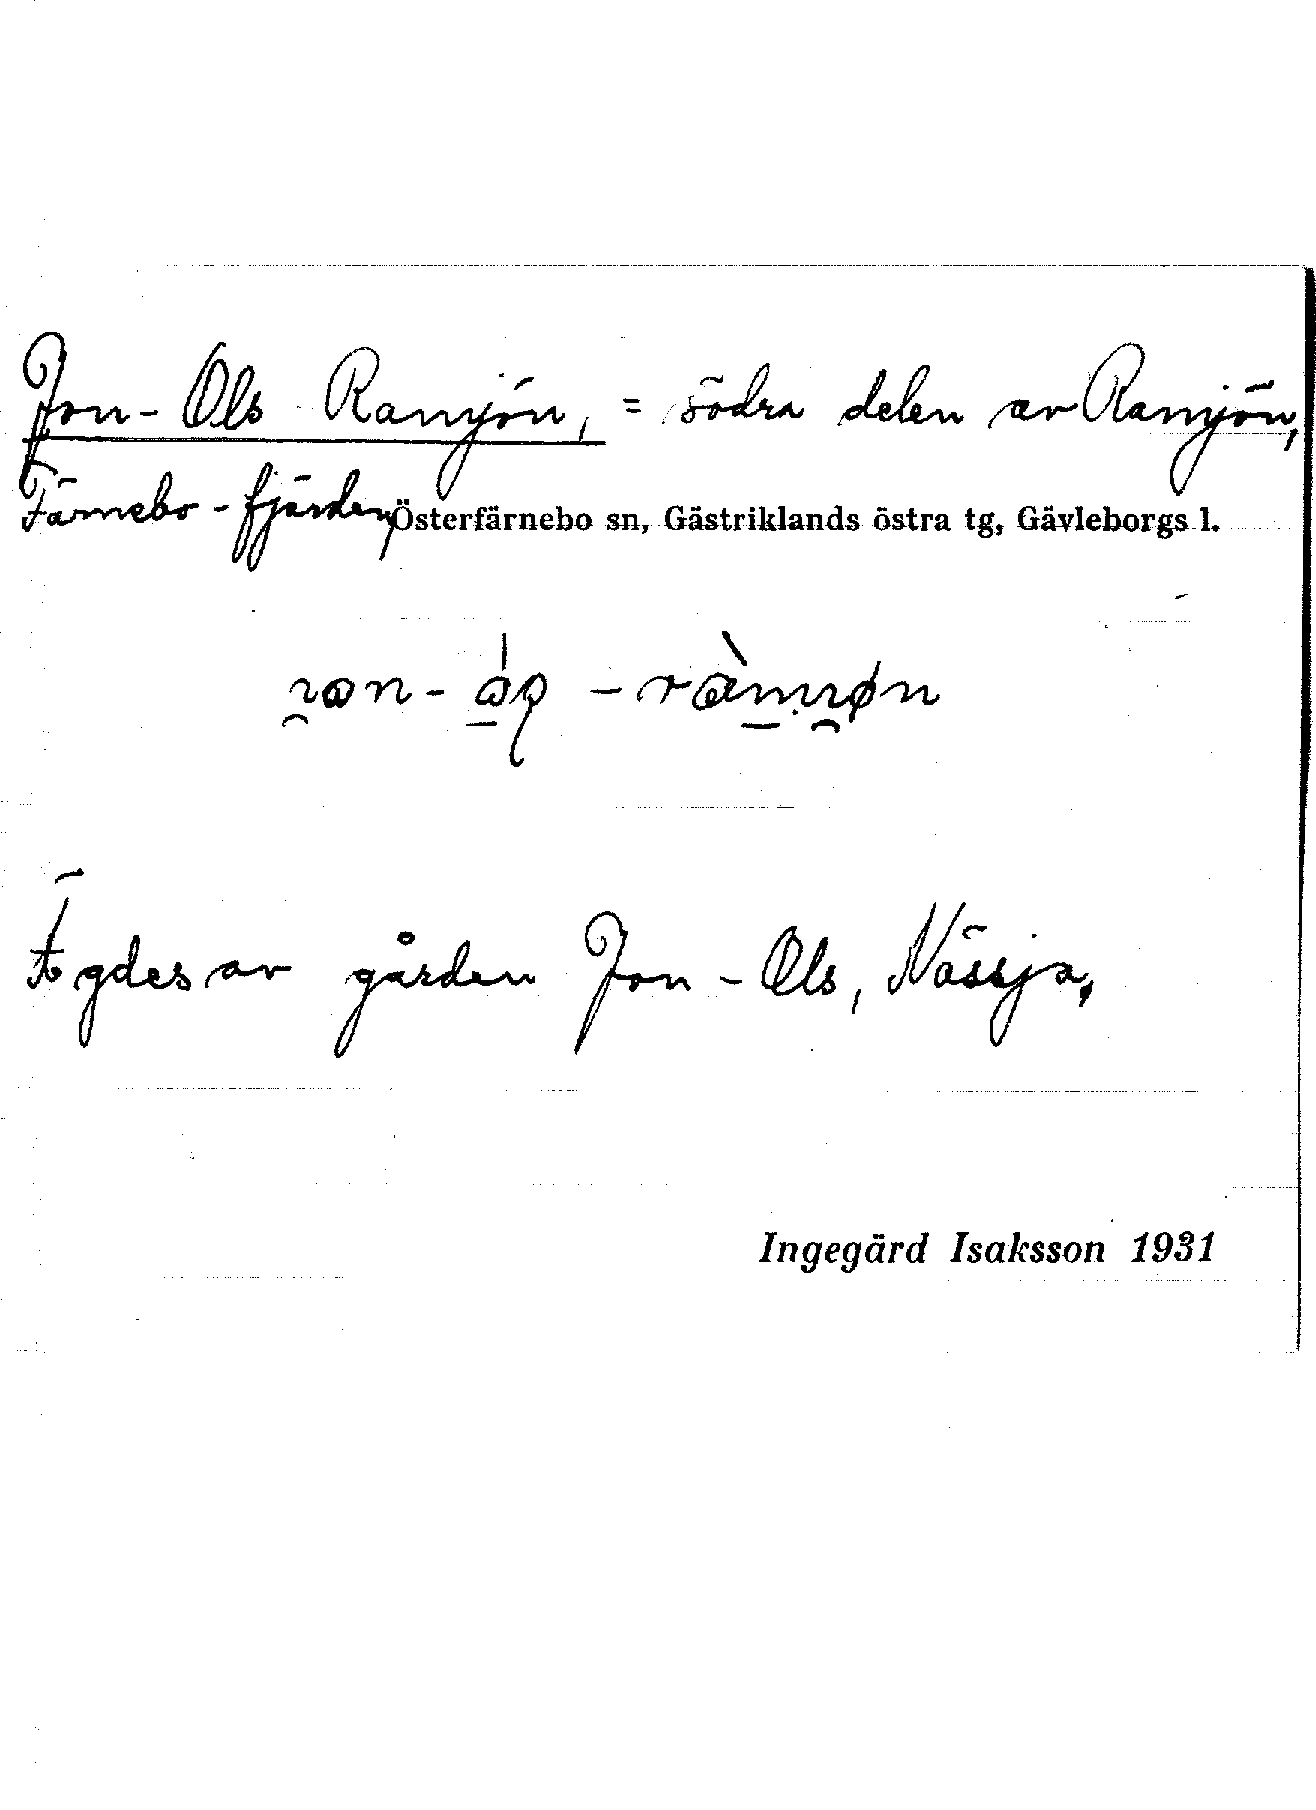 Jon-Ols Ramjön, = södra delen av Ramjön,
Färnebo-fjärden, Österfärnebo sn, Gästriklands östra tg, Gävleborgs l.
Ägdes av gården Jon-Ols, Nässja.
Ingegärd Isaksson 1931